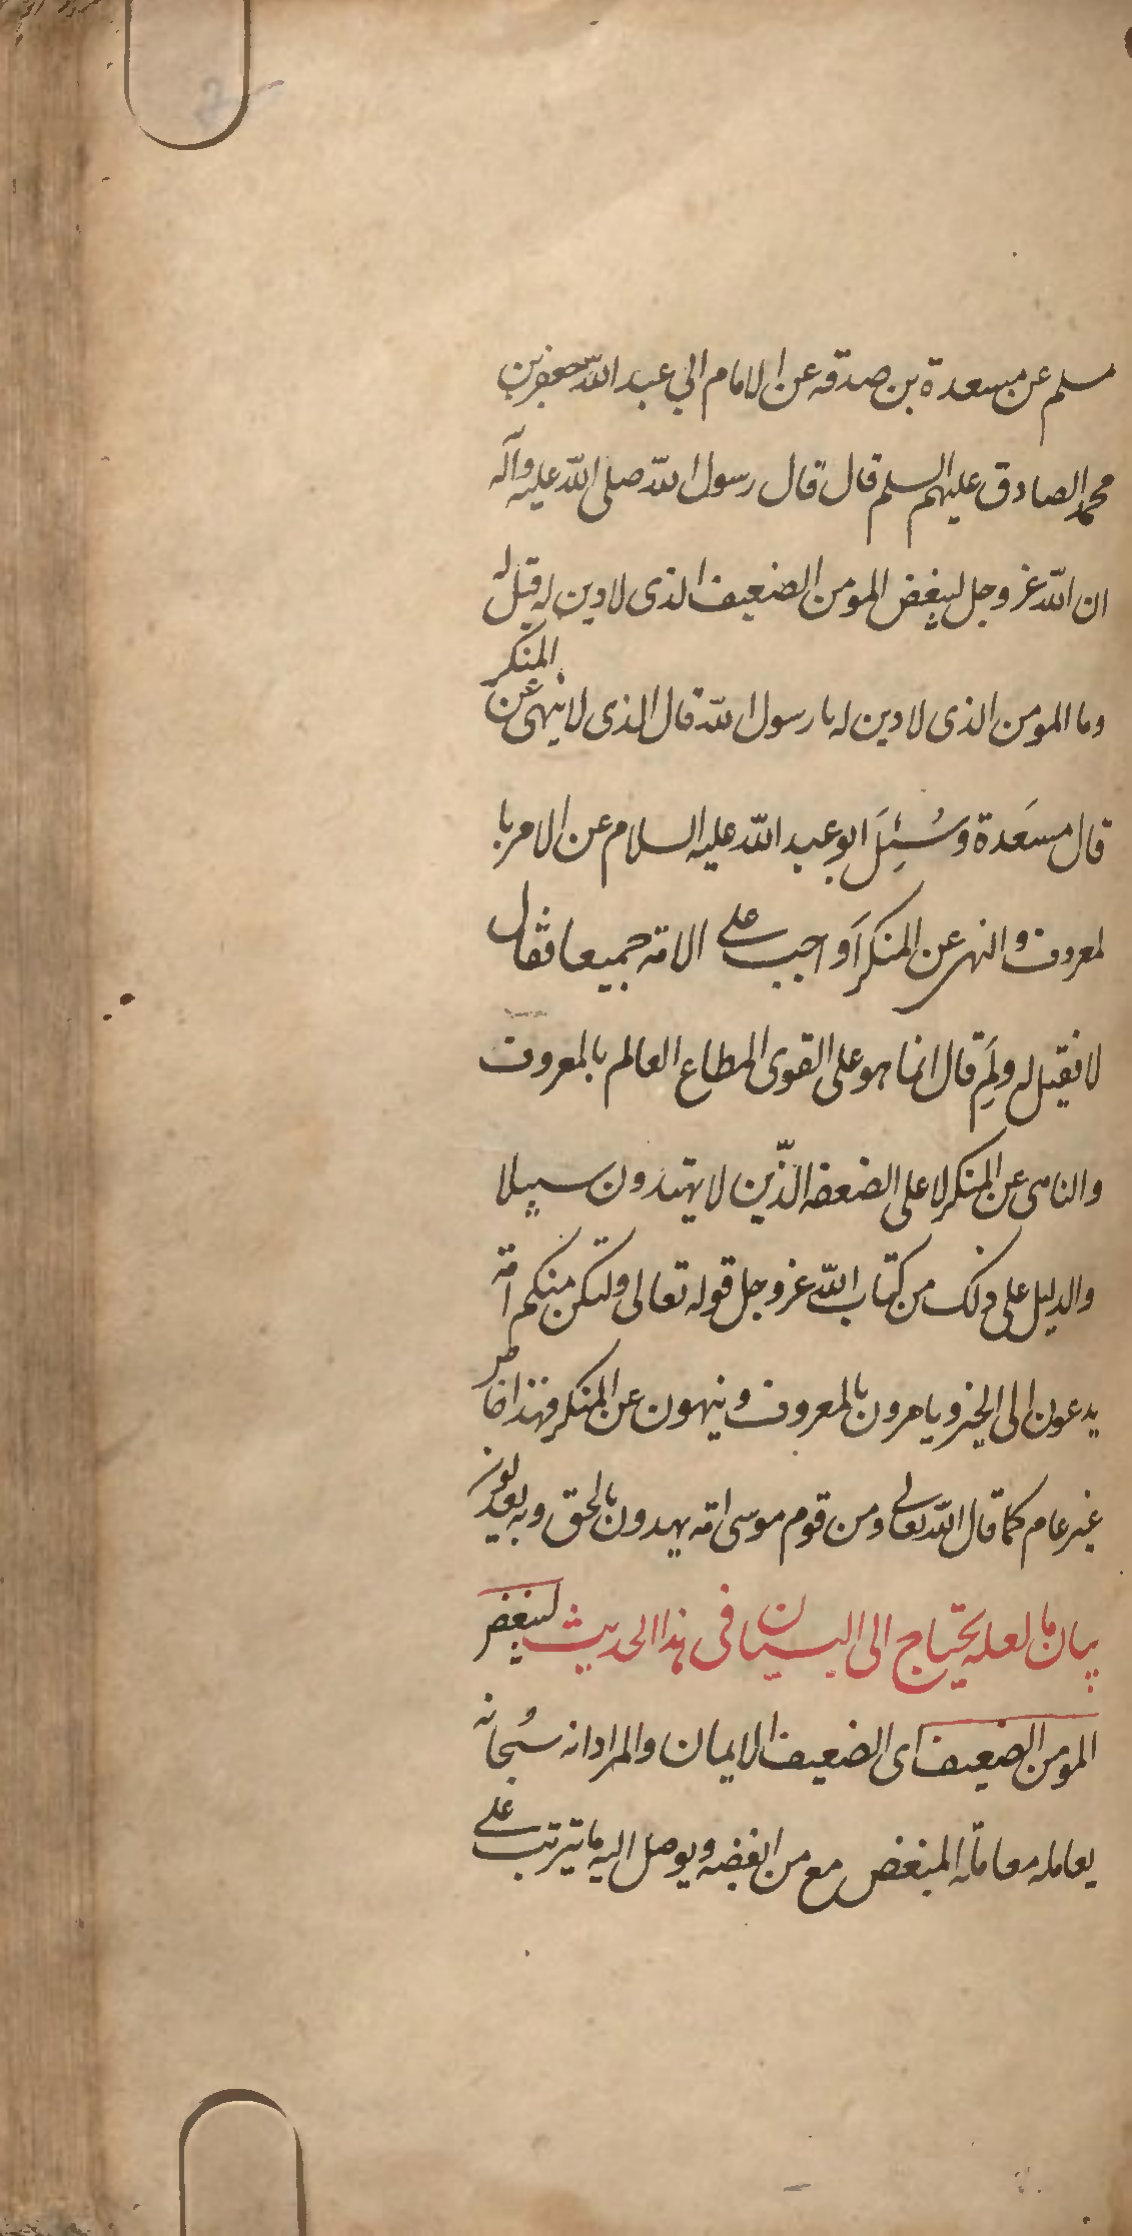 مسلم عن مسعدة بن صدقه عن الامام ابي عبد الله جعفر بن
محمد الصادق عليهم السلم قال قال رسول الله صلى الله عليه وآله
ان الله عز وجل ليبغض المومن الضعيف الذى لا دين له فقيل له
وما المومن الذى لا دين له يا رسول الله قال الذى لا ينهى عن المنكر
قال مسعدة وسُئِلَ ابو عبد الله عليه السلام عن الامر با
لمعروف و النهى عن المنكر اَواجب على الامة جميعا فقال
لا فقيل له ولِمَ قال انما هو على القوى المطاع العالم بالمعروف
والناهى عن المنكر لا على الضعفه الذّين لا يهتدون سبيلا
والدليل على ذلك من كتاب الله عز وجل قوله تعالى ولتكن منكم امة
يدعون الى الخير ويامرون بالمعروف وينهون عن المنكر فهذا خاص
غير عام كما قال الله تعالى ومن قوم موسى امة يهدون بالحق وبه يعدلون
بيان ما لعله يحتاج الى البيان فى هذا الحديث ليبغض
المومن الضعيف اى الضعيف الايمان والمراد انه سُبحانه
يعامله معاملة المبغض مع من ابغضه ويوصل اليه ما يترتب على